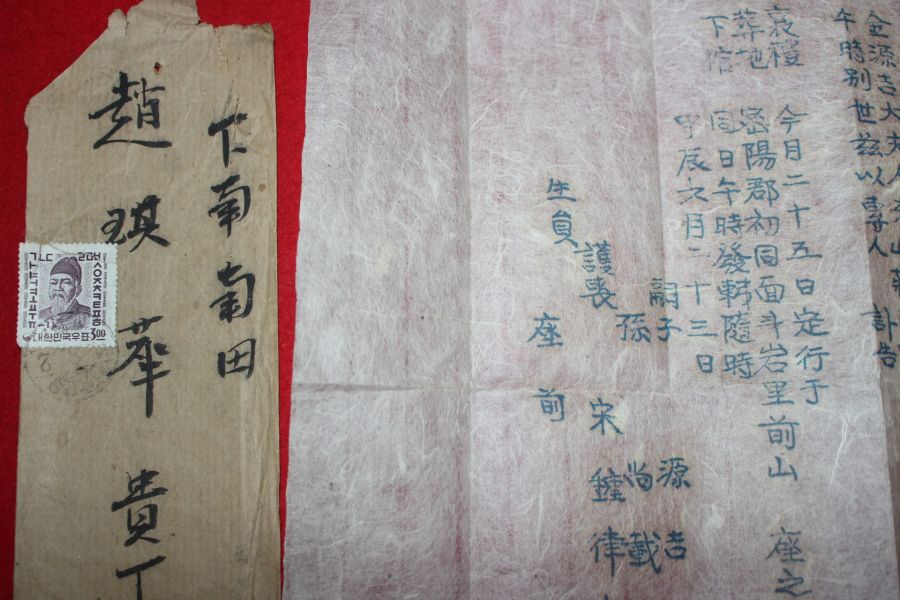 下南 南田
趙 琪 華 貴下
대한민국우표
3.00
金源吉大夫人
午時別世玆以專人 訃告
哀禮 今月二十五日定行于
葬地 密陽郡初同面斗岩里前山 座之
下信 同日午時發靷隨時
甲辰九月二十三日
嗣子 源吉
孫 尚載
護喪 宋 鐘律
生員 座前